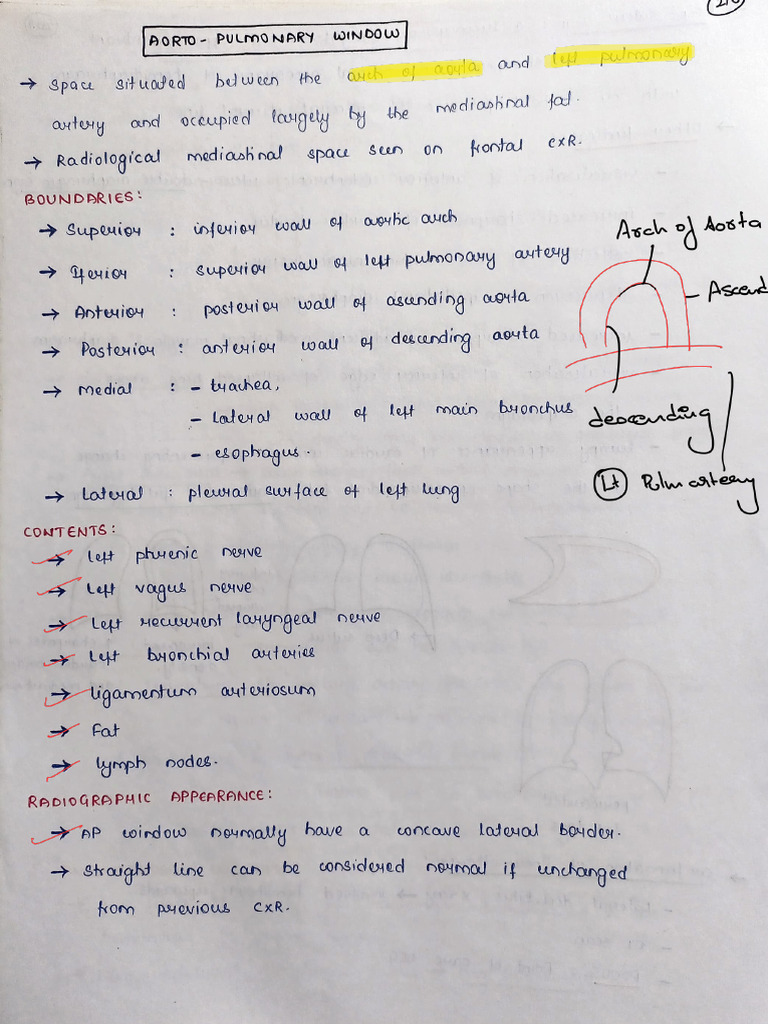 AORTO - PULMONARY WINDOW
→ Space situated between the arch of aorta and left pulmonary
artery and occupied largely by the mediastinal fat.
→ Radiological mediastinal space seen on frontal CXR.
BOUNDARIES:
→ Superior : inferior wall of aortic arch
→ Iferior : superior wall of left pulmonary artery
→ Anterior : posterior wall of ascending aorta
→ Posterior : anterior wall of descending aorta
→ Medial : - trachea,
- Lateral wall of left main bronchus
- esophagus.
→ Lateral : pleural surface of left lung
Arch of Aorta
Ascend
descending
Lt Pulm artery
CONTENTS:
→ Left phrenic nerve
→ Left vagus nerve
→ Left recurrent laryngeal nerve
→ Left bronchial arteries
→ Ligamentum arteriosum
→ Fat
→ Lymph nodes.
RADIOGRAPHIC APPEARANCE:
→ AP window normally have a concave lateral border.
→ Straight line can be considered normal if unchanged
from previous CXR.